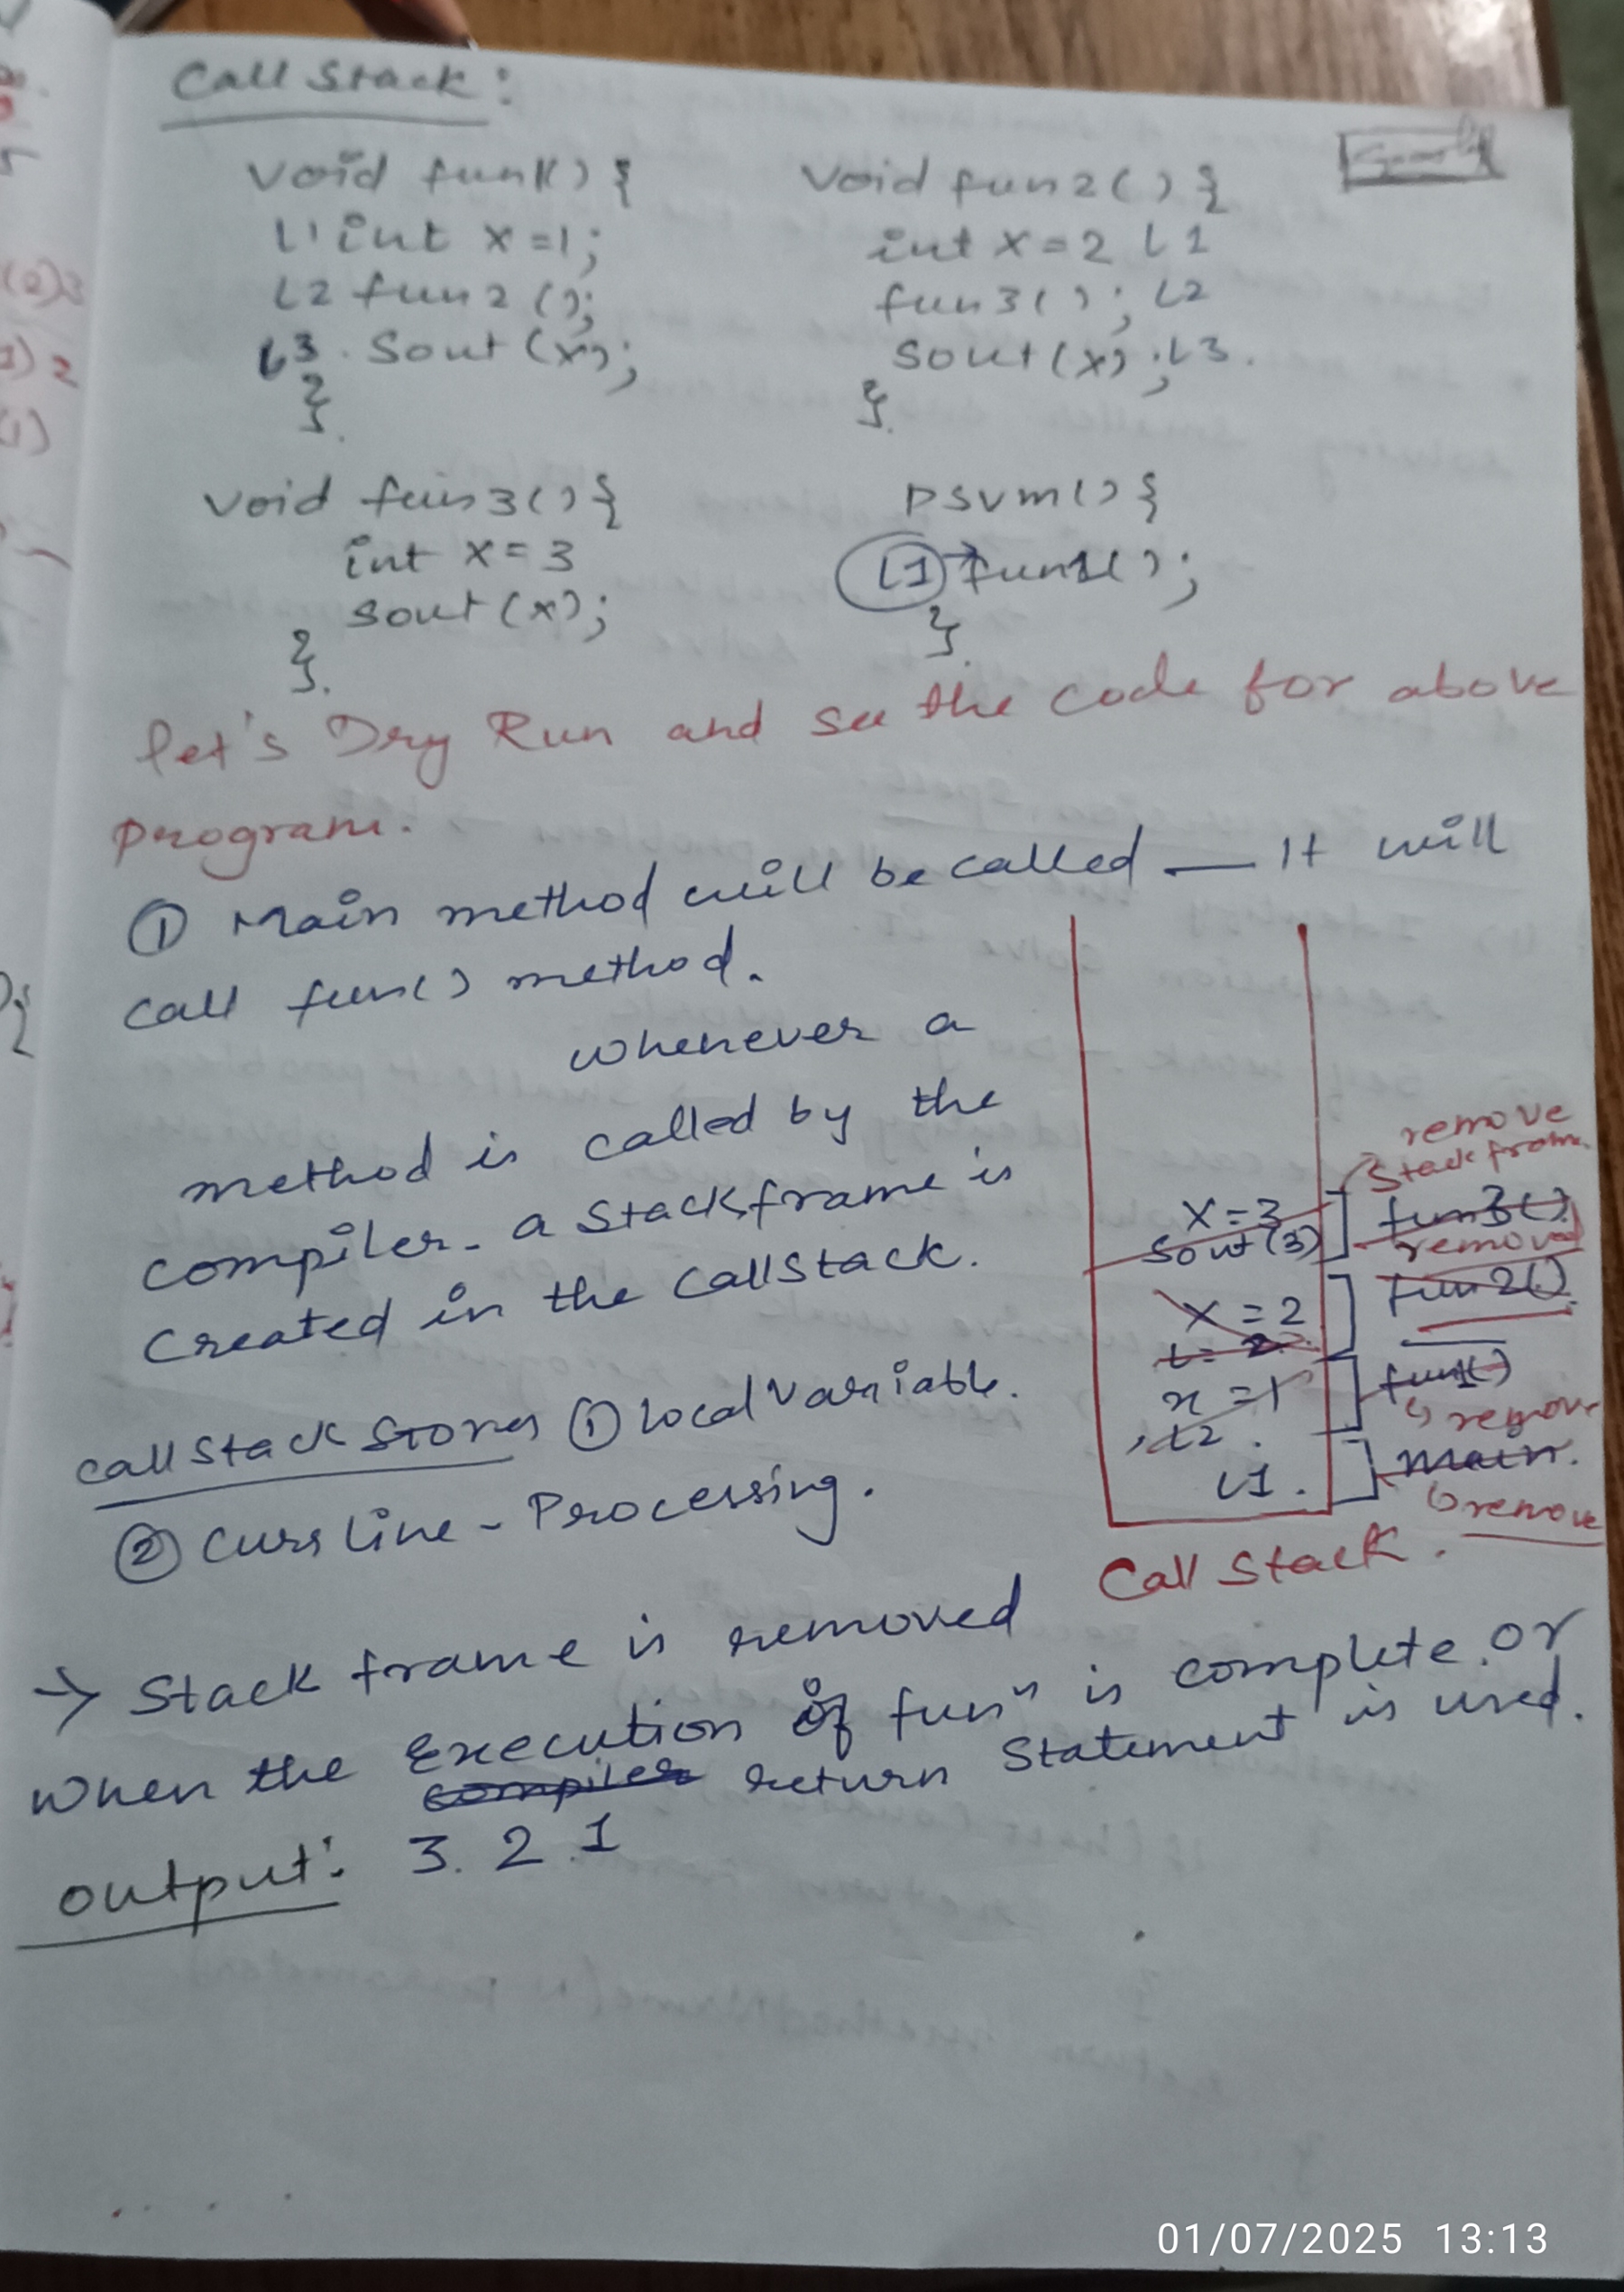 Call Stack:
Void fun1() {
L1 int x=1;
L2 fun2();
L3. Sout(x);
}.
Void fun2() {
int x=2 L1
fun3(); L2
Sout(x); L3.
}.
Void fun3() {
int x=3
Sout(x);
}.
psvm() {
L1 → fun1();
}.
let's Dry Run and see the code for above
program.
① Main method will be called — It will
call fun() method.
whenever a
method is called by the
compiler - a stack frame is
created in the callstack.
call stack stores ① local variable.
② Curr line - Processing.
remove
Stack frame
x=3
Sout(3)
fun3()
remove
x=2
L=2
fun2()
x=1
L2.
fun1()
↳ remove
L1.
main.
↳ remove
Call Stack.
→ Stack frame is removed
when the Execution of funⁿ is complete. or
compiler return statement is used.
output: 3. 2. 1
01/07/2025 13:13